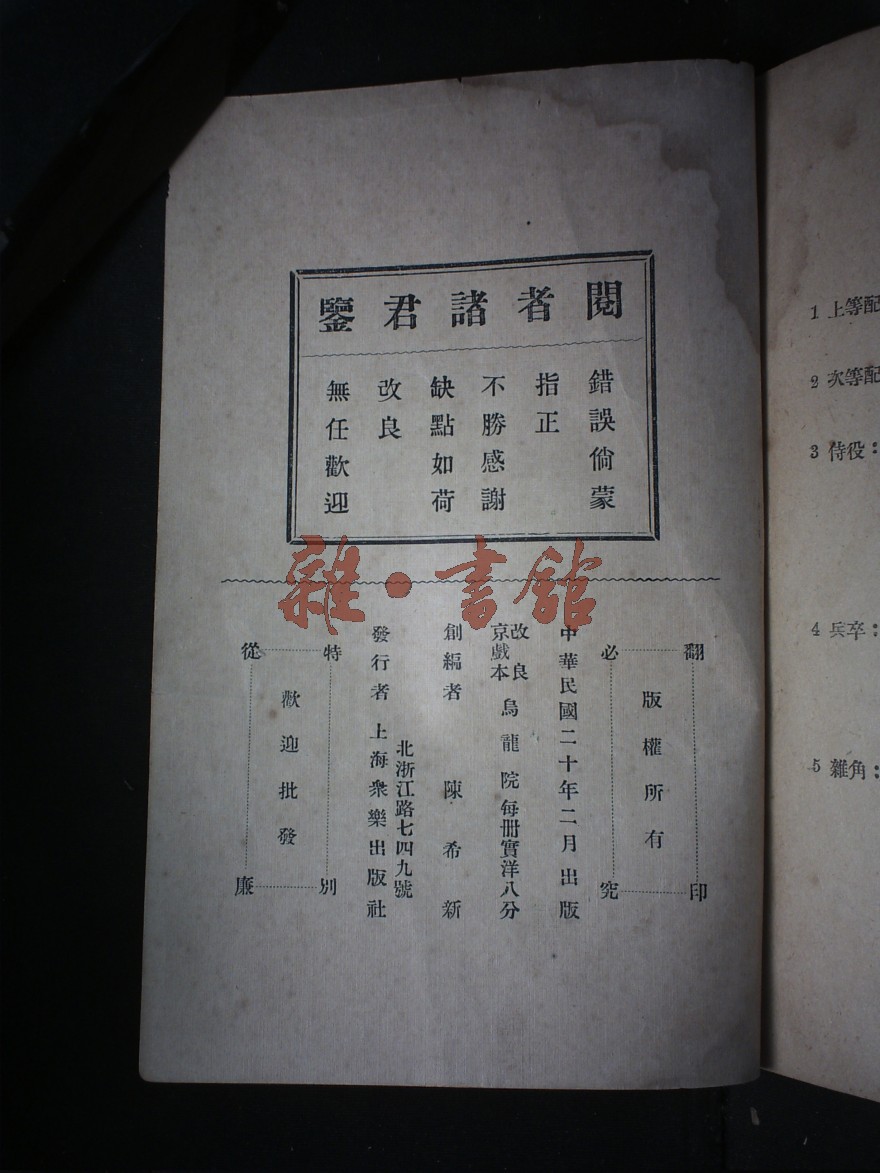 閱者諸君鑒
錯誤倘蒙
指正
不勝感謝
缺點如荷
改良
無任歡迎
翻印必究
版權所有
中華民國二十年二月出版
改良京戲本 烏龍院 每冊實洋八分
創編者 陳希新
北浙江路七四九號
發行者 上海衆樂出版社
特別從廉
歡迎批發
雜·書館
1 上等配
2 次等配
3 侍役：
4 兵卒：
5 雜角：